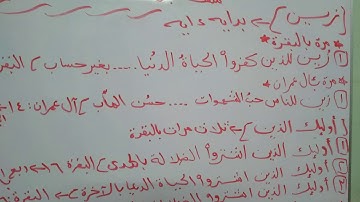 [زين] ← بداية ءاية
* مرة بالبقرة *
① زين للذين كفروا الحياة الدنيا .... بغير حساب } البقرة
* مرة بآل عمران *
① زين للناس حب الشهوات .... حسن المآب } آل عمران: ١٤
[أوليك الذين] ← ثلاث مرات بالبقرة
① أوليك الذين اشتروا الضلالة بالهدى } البقرة ١٦
② أوليك الذين اشتروا الحياة الدنيا بالآخرة } البقرة
أوليك الذين اشتروا